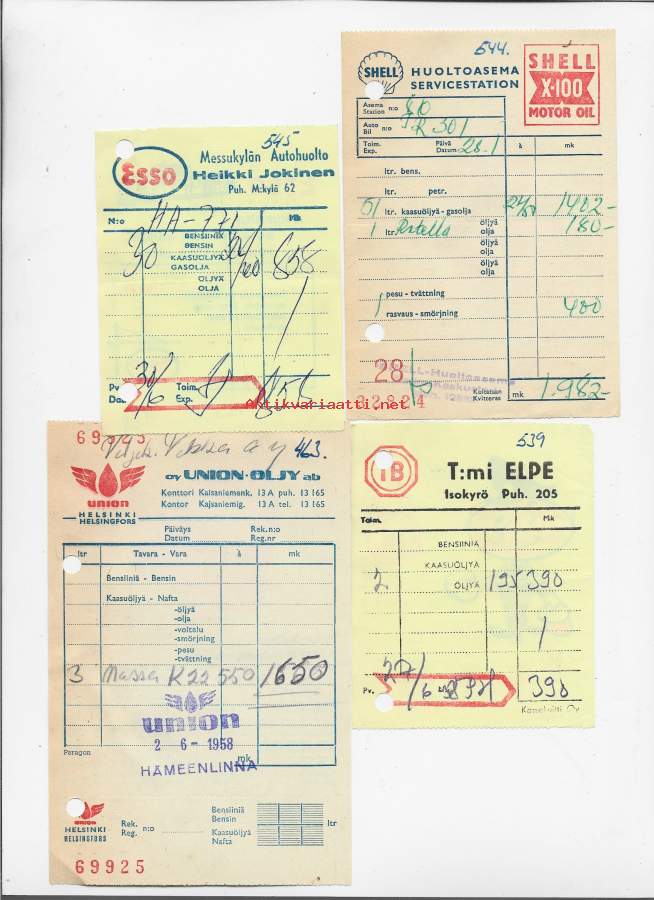 545
ESSO
Messukylän Autohuolto
Heikki Jokinen
Puh. M:kylä 62
N:o HA-771 Mk
30 BENSIINIÄ
BENSIN
KAASUÖLJYÄ 858
GASOLJA
ÖLJYÄ
OLJA
Toim.
Exp.
544.
SHELL
HUOLTOASEMA
SERVICESTATION
SHELL
X-100
MOTOR OIL
Asema
Station n:o
Auto
Bil n:o
Toim.
Exp.
Päivä
Datum 28.1
à mk
ltr. bens.
ltr. petr.
ltr. kaasuöljyä-gasolja 1402-
1 ltr. öljyä
olja 180-
öljyä
olja
öljyä
olja
1 pesu - tvättning
rasvaus - smörjning 400
28
SHELL-Huoltoasema
Kuitataan
Kvitteras mk 1.982-
Antikvariaatti.net
463.
union
HELSINKI
HELSINGFORS
OY UNION-ÖLJY ab
Konttori Kaisaniemenk. 13 A puh. 13 165
Kontor Kajsaniemig. 13 A tel. 13 165
Päiväys
Datum
Rek.n:o
Reg.nr
ltr Tavara - Vara à mk
Bensiiniä - Bensin
Kaasuöljyä - Nafta
-öljyä
-olja
-voitelu
-smörjning
-pesu
-tvättning
3 Massa K22 550 1650
union
2 6 - 1958
HÄMEENLINNA
mk
Paragon
union
HELSINKI
HELSINGFORS
Rek.
Reg. n:o
Bensiiniä
Bensin
Kaasuöljyä
Nafta
ltr
69925
539
TB
T:mi ELPE
Isokyrö Puh. 205
Toim. Mk
BENSIINIÄ
KAASUÖLJYÄ
2 ÖLJYÄ 195 390
Pv. 27/6 390